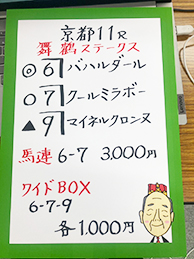 京都11R
舞鶴ステークス
◎6 バハルダール
○7 クールミラボー
▲9 マイネルクロンヌ
馬連 6-7 3,000円
ワイドBOX
6-7-9
各1,000円